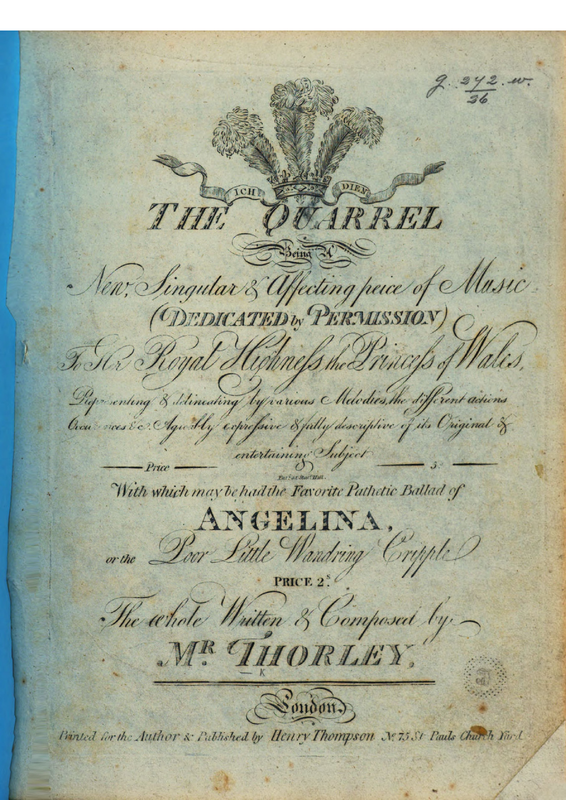 g. 272. w.
26
ICH DIEN
THE QUARREL
Being A
New, Singular & Affecting peice of Music
(DEDICATED by PERMISSION)
To Her Royal Highness, the Princess of Wales,
Representing & delineating by various Melodies, the different actions
Occurrences &c. Agreably expressive & fully descriptive of its Original &
entertaining Subject
Price 5s
Ent.d at Stars. Hall
With which may be had the Favorite Pathetic Ballad of
ANGELINA,
or the Poor Little Wandring Cripple
PRICE 2s.
The whole Written & Composed by
MR THORLEY,
K
London
Printed for the Author & Published by Henry Thompson No 75 St Pauls Church Yard